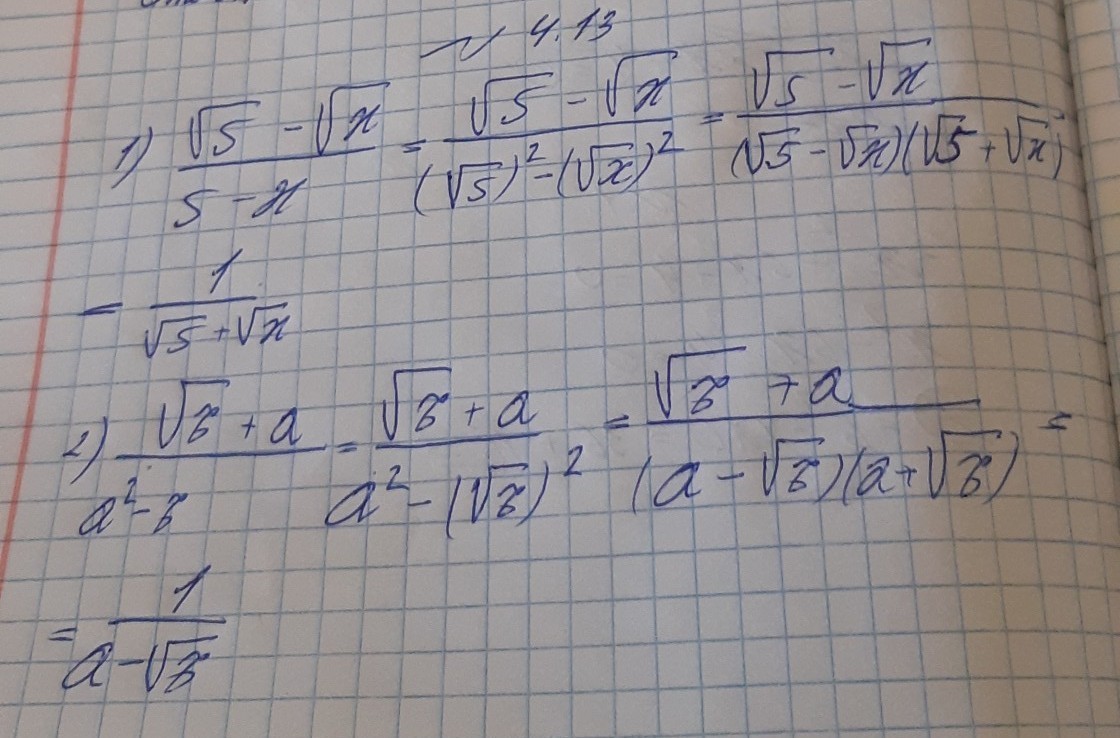 ~ 4.13
1) (√5 - √x)/(5 - x) = (√5 - √x)/((√5)² - (√x)²) = (√5 - √x)/((√5 - √x)(√5 + √x))
= 1/(√5 + √x)
2) (√b + a)/(a² - b) = (√b + a)/(a² - (√b)²) = (√b + a)/((a - √b)(a + √b)) =
= 1/(a - √b)